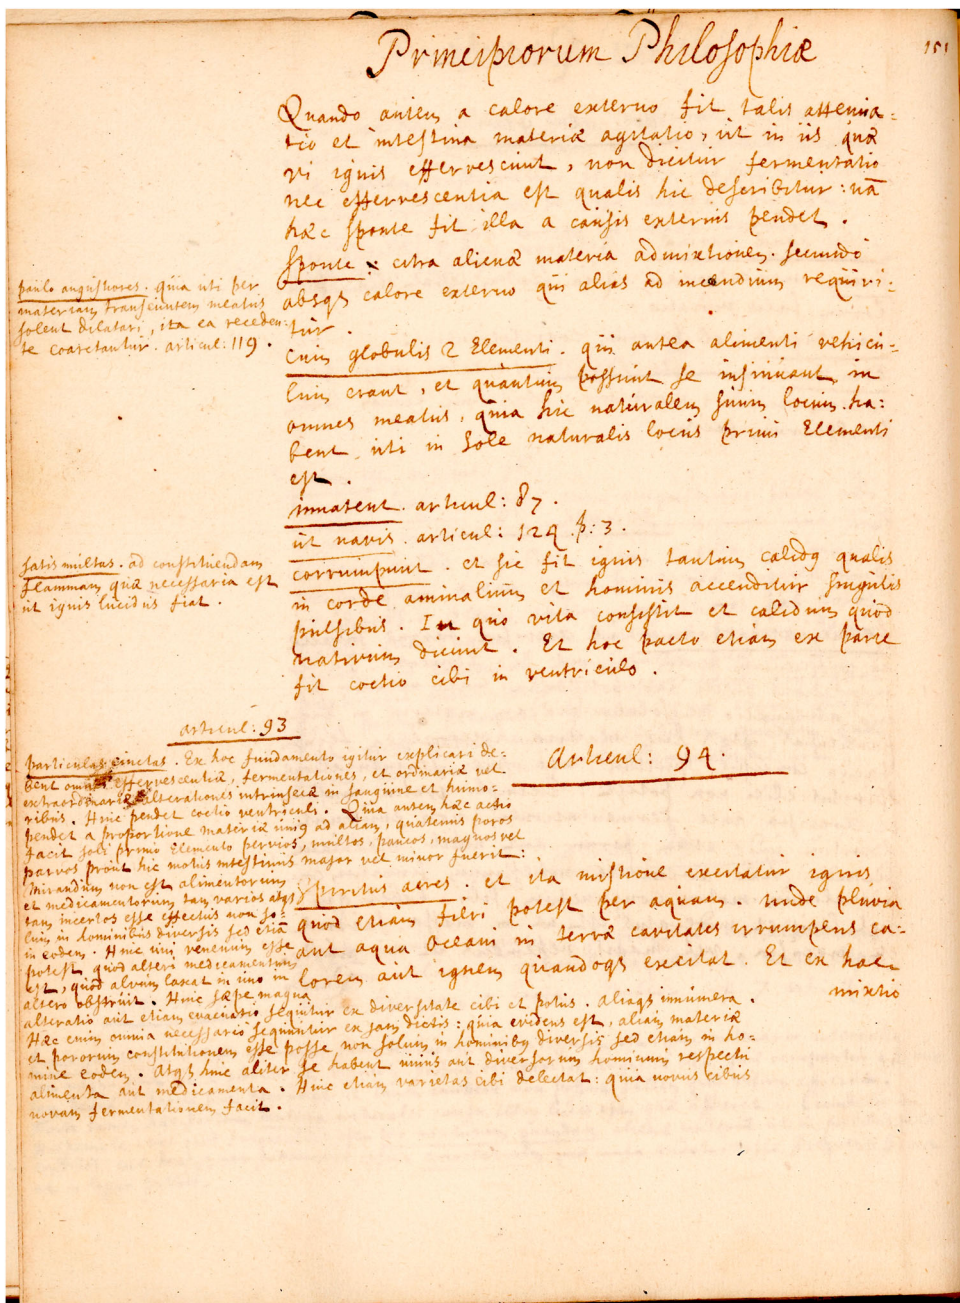 Principiorum Philosophiæ
151
Quando autem a calore externo fit talis attenua-
tio et intestina materiæ agitatio, ut in iis quæ
vi ignis effervescunt, non dicitur fermentatio
nec effervescentia est qualis hic describitur: nā
hæc sponte fit illa a causis externis pendet.
Sponte: citra alienæ materiæ admixtionem. secundo
absqs calore externo qui alias ad incendium requiri-
tur.
cum globulis 2 Elementi. qui antea alimenti vehicu-
lum erant, et quantum possunt se insinuant in
omnes meatus, quia hic naturalem suum locum ha:
bent, uti in Sole naturalis locus primi Elementi
est.
innatent. articul: 87.
ut navis. articul: 129. p: 3.
corrumpunt. et sic fit ignis tantum calidq qualis
in corde animalium et hominis accenditur singulis
pulsibus. In quo vita consistit et calidum quod
nativum dicunt. Et hoc pacto etiam ex parte
fit coctio cibi in ventriculo.
paulo angustiores. quia uti per
materiam transeuntem meatus
solent dilatari, ita ea receden-
te coarctantur. articul: 119.
satis multas. ad constituendam
flammam quæ necessaria est
ut ignis lucidus fiat.
articul: 93
particulas cinctas. Ex hoc fundamento igitur explicari de-
bent omnes effervescentiæ, fermentationes, et ordinariæ vel
extraordinariæ alterationes intrinsecæ in sanguine et humo-
ribus. Hinc pendet coctio ventriculi. Quia autem hæc actio
pendet a proportione materiæ uniq ad aliam, quatenus poros
facit soli primo Elemento pervios, multos, paucos, magnos vel
parvos prout hic motus intestinus major vel minor fuerit:
Mirandum non est alimentorum
et medicamentorum tam varios atqs
tam incertos esse effectus non so-
lum in hominibus diversis sed etiā
in eodem. Hinc uni venenum esse
potest, quod alteri medicamentum
est, quod alvum laxat in uno in
altero obstruit. Hinc sæpe magna
alteratio aut etiam evacuatio sequitur ex diversitate cibi et potus. aliaqs innumera.
Hæc enim omnia necessario sequuntur ex jam dictis: quia evidens est, aliam materiæ
et pororum constitutionem esse posse non solum in hominibq diversis sed etiam in ho-
mine eodem. Atqs hinc aliter se habent unius aut diversorum hominum respectu
alimenta aut medicamenta. Hinc etiam varietas cibi delectat: quia novus cibus
novam fermentationem facit.
Articul: 94.
Spiritus acres. et ita mistione excitatur ignis
quod etiam fieri potest per aquam. unde pluvia
aut aqua Oceani in terræ cavitates irrumpens ca-
lorem aut ignem quandoqs excitat. Et ex hac
mixtio